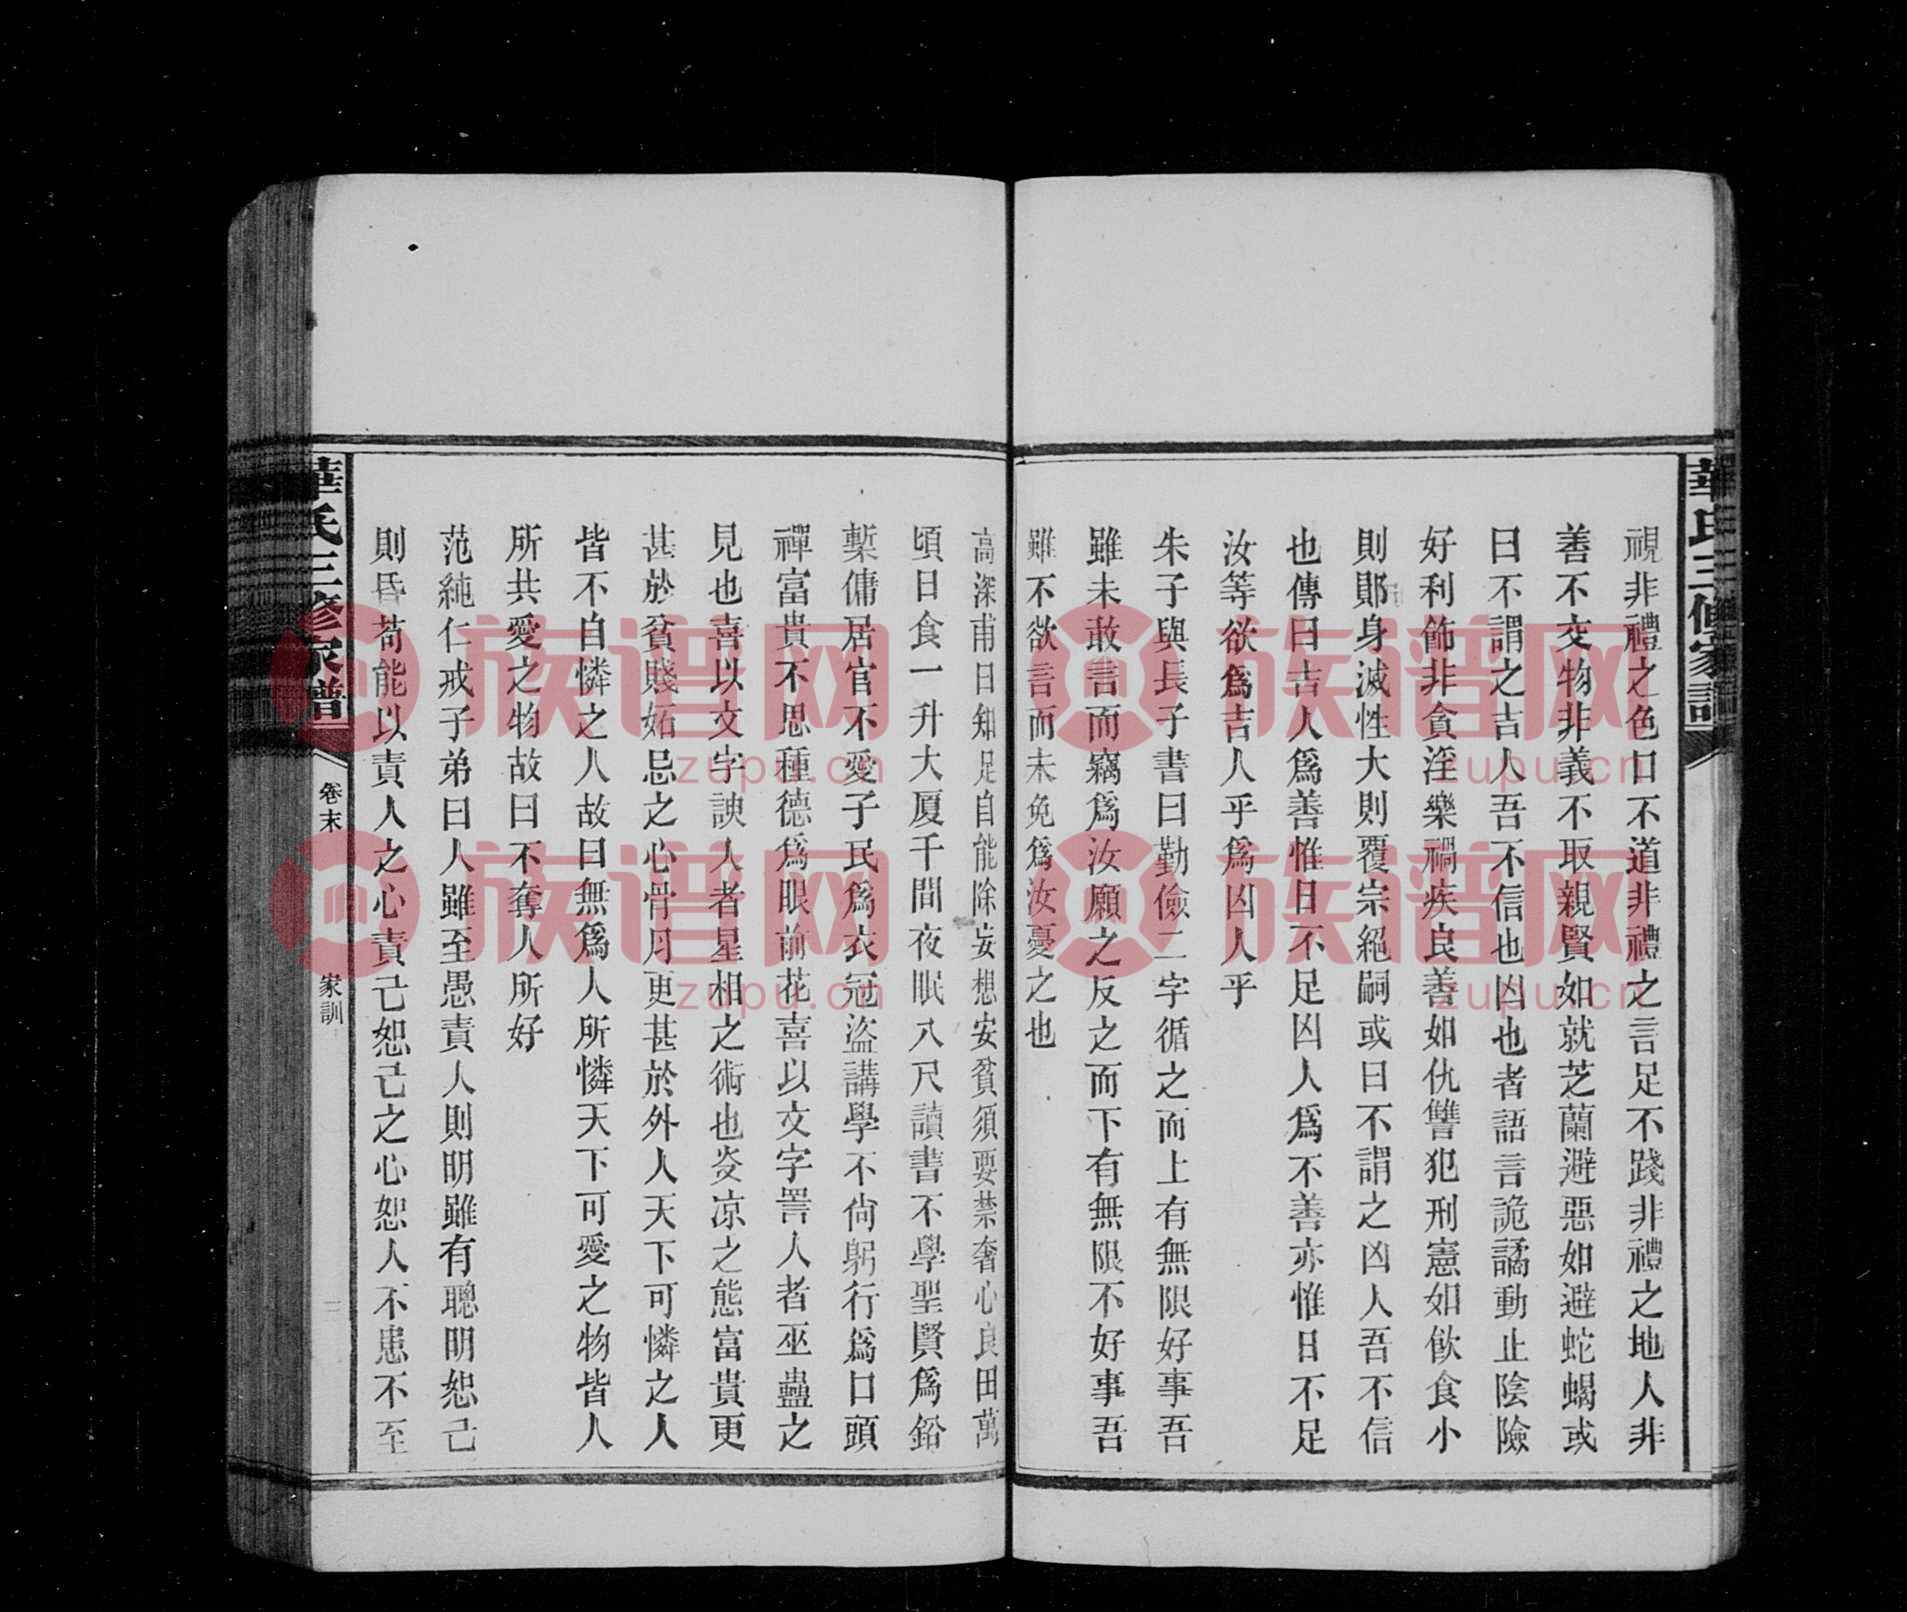 華氏三修家譜
視非禮之色口不道非禮之言足不踐非禮之地人非
善不交物非義不取親賢如就芝蘭避惡如避蛇蝎或
曰不謂之吉人吾不信也凶也者語言詭譎動止陰險
好利飾非貪淫樂禍疾良善如仇讐犯刑憲如飲食小
則鄖身滅性大則覆宗絕嗣或曰不謂之凶人吾不信
也傳曰吉人爲善惟日不足凶人爲不善亦惟日不足
汝等欲爲吉人乎爲凶人乎
朱子與長子書曰勤儉二字循之而上有無限好事吾
雖未敢言而竊爲汝願之反之而下有無限不好事吾
雖不欲言而未免爲汝憂之也
高深甫曰知足自能除妄想安貧須要禁奢心良田萬
頃日食一升大厦千間夜眠八尺讀書不學聖賢爲鉛
槧傭居官不愛子民爲衣冠盜講學不尙躬行爲口頭
禪富貴不思種德爲眼前花喜以文字詈人者巫蠱之
見也喜以文字諛人者星相之術也炎凉之態富貴更
甚於貧賤妬忌之心骨月更甚於外人天下可憐之人
皆不自憐之人故曰無爲人所憐天下可愛之物皆人
所共愛之物故曰不奪人所好
范純仁戒子弟曰人雖至愚責人則明雖有聰明恕己
則昏苟能以責人之心責己恕己之心恕人不患不至
華氏三修家譜
卷末
家訓
三
族谱网
zupu.cn
族谱网
zupu.cn
族谱网
zupu.cn
族谱网
zupu.cn